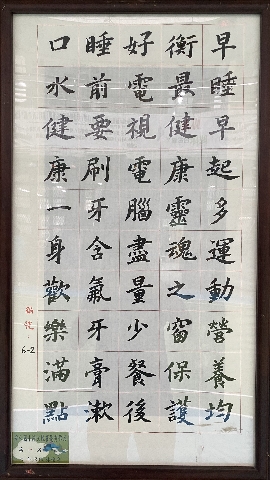 早睡早起多運動營養均
衡最健康靈魂之窗保護
好電視電腦盡量少餐後
睡前要刷牙含氟牙膏漱
口水健康一身歡樂滿點
6-2